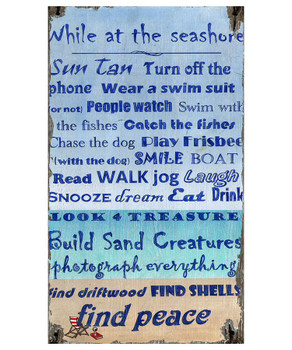 While at the seashore
Sun Tan Turn off the
phone Wear a swim suit
(or not) People watch Swim with
the fishes Catch the fishes
Chase the dog Play Frisbee
(with the dog) SMILE BOAT
Read WALK jog Laugh
SNOOZE dream Eat Drink
LOOK 4 TREASURE
Build Sand Creatures
photograph everything
find driftwood FIND SHELLS
find peace